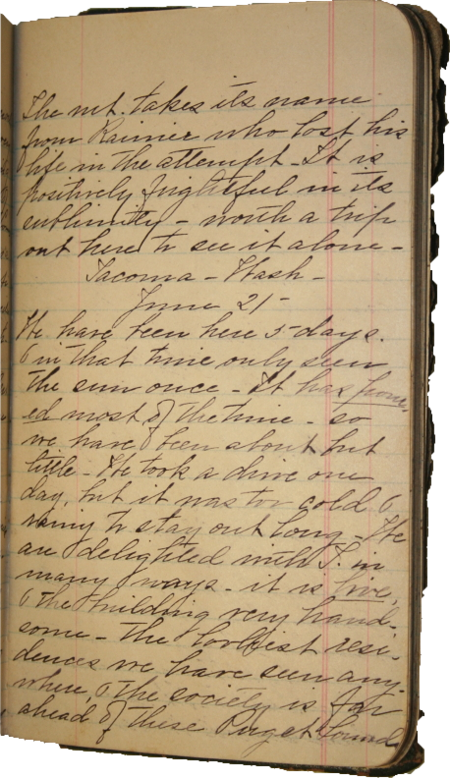 The mt. takes its name
from Rainier who lost his
life in the attempt - It is
positively frightful in its
sublimity - worth a trip
out here to see it alone -
Tacoma - Wash -
June 21 -
We have been here 5 days.
& in that time only seen
the sun once - It has pour-
ed most of the time - so
we have been about but
little - We took a drive one
day, but it was too cold &
rainy to stay out long - We
are delighted with T. in
many ways - it is live,
& the building very hand-
some - the loveliest resi-
dences we have seen any-
where, & the society is far
ahead of these Puget Sound